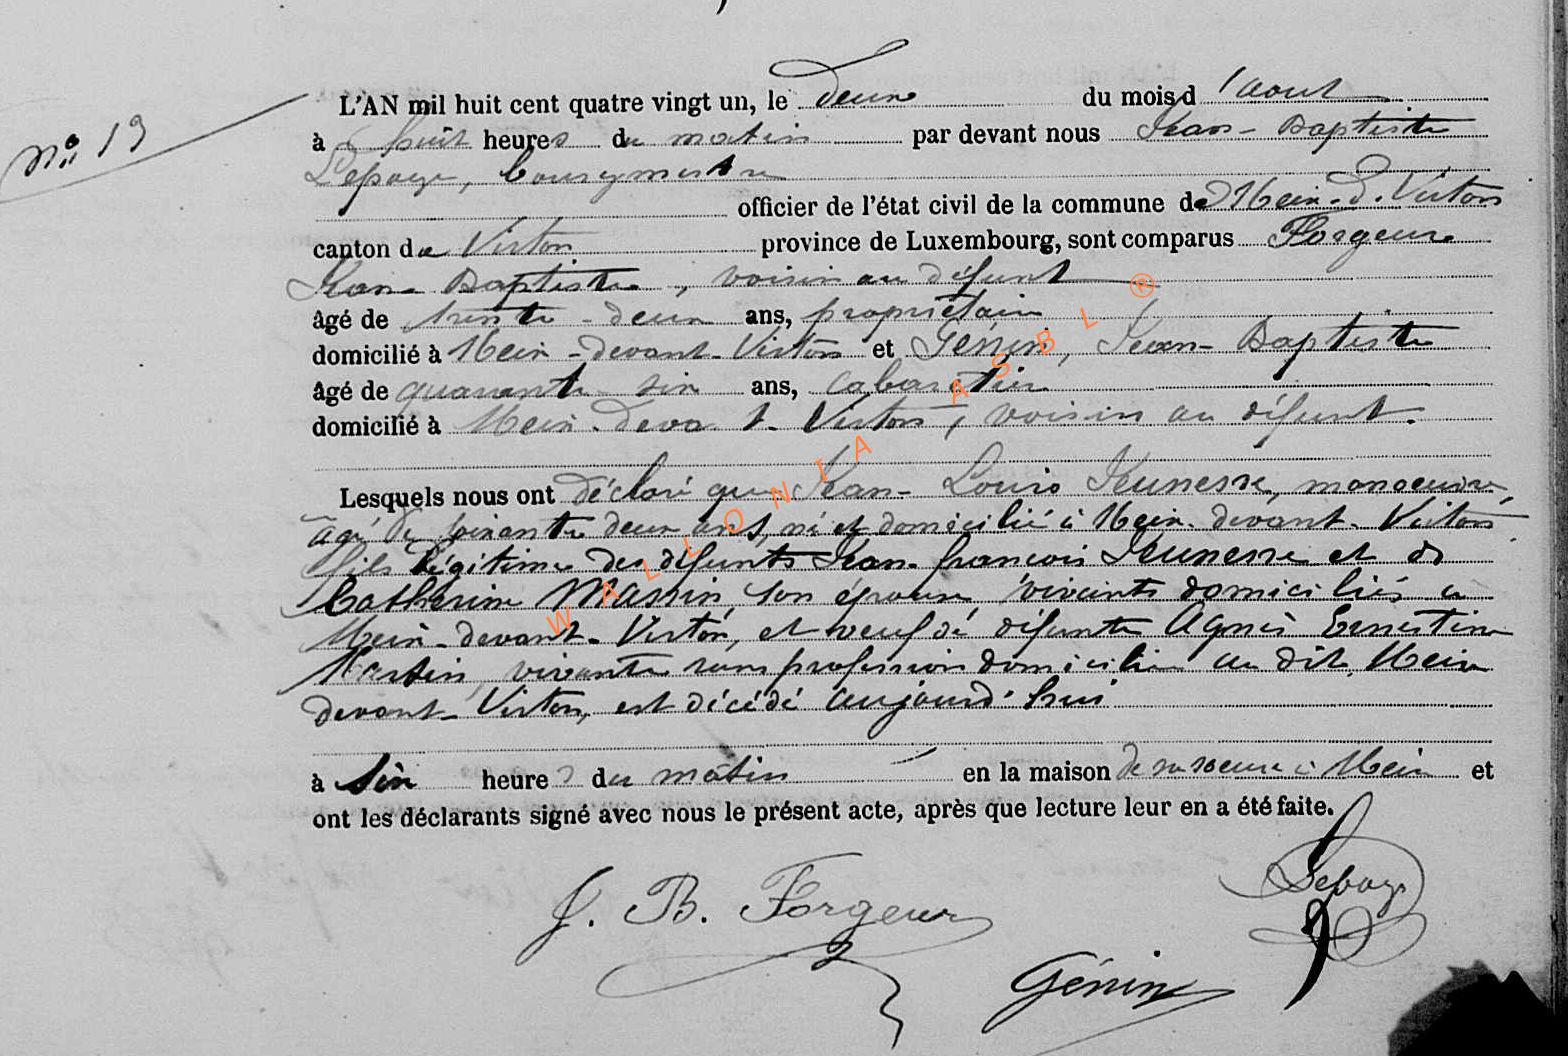 N° 19
L'AN mil huit cent quatre vingt un, le deux du mois d'aout
à huit heures du matin par devant nous Jean-Baptiste
Lepage, bourgmestre
officier de l'état civil de la commune de Meix-d.Virton
canton de Virton province de Luxembourg, sont comparus Forgeur
Jean Baptiste, voisin au défunt
âgé de trente-deux ans, propriétaire
domicilié à Meix-devant-Virton et Génin, Jean-Baptiste
âgé de quarante six ans, cabaretier
domicilié à Meix-devant-Virton, voisin au défunt.
Lesquels nous ont déclaré que Jean-Louis Jeunesse, manoeuvre,
âgé de soixante deux ans, né et domicilié à Meix-devant-Virton
fils légitime des défunts Jean-françois Jeunesse et de
Catherine Massin, son épouse vivants domiciliés à
Meix-devant-Virton, et veuf de défunte Agnès Ernestine
Martin, vivante sans profession domiciliée au dit Meix
devant-Virton, est décédé aujourd'hui
à six heures du matin en la maison de sa soeur à Meix et
ont les déclarants signé avec nous le présent acte, après que lecture leur en a été faite.
J. B. Forgeur
Lepage
Génin
WALLONIA ASBL ®